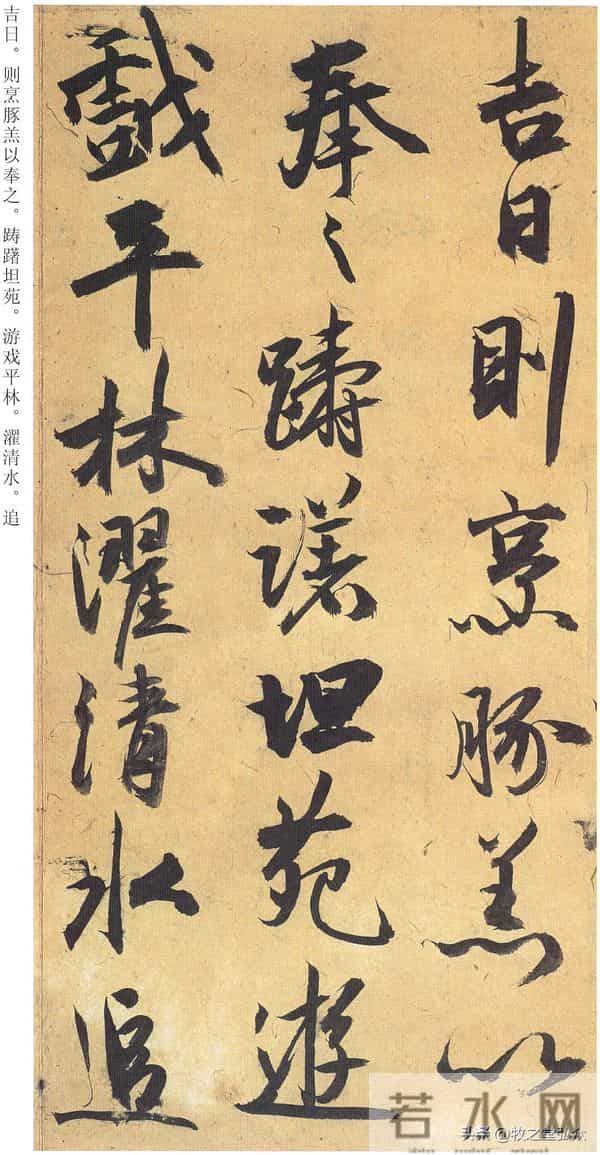 吉日則烹豚羔以
奉之躊躇坦苑遊
戲平林濯清水追
吉日。则烹豚羔以奉之。踌躇坦苑。游戏平林。濯清水。追
若水网
头条 @牧之